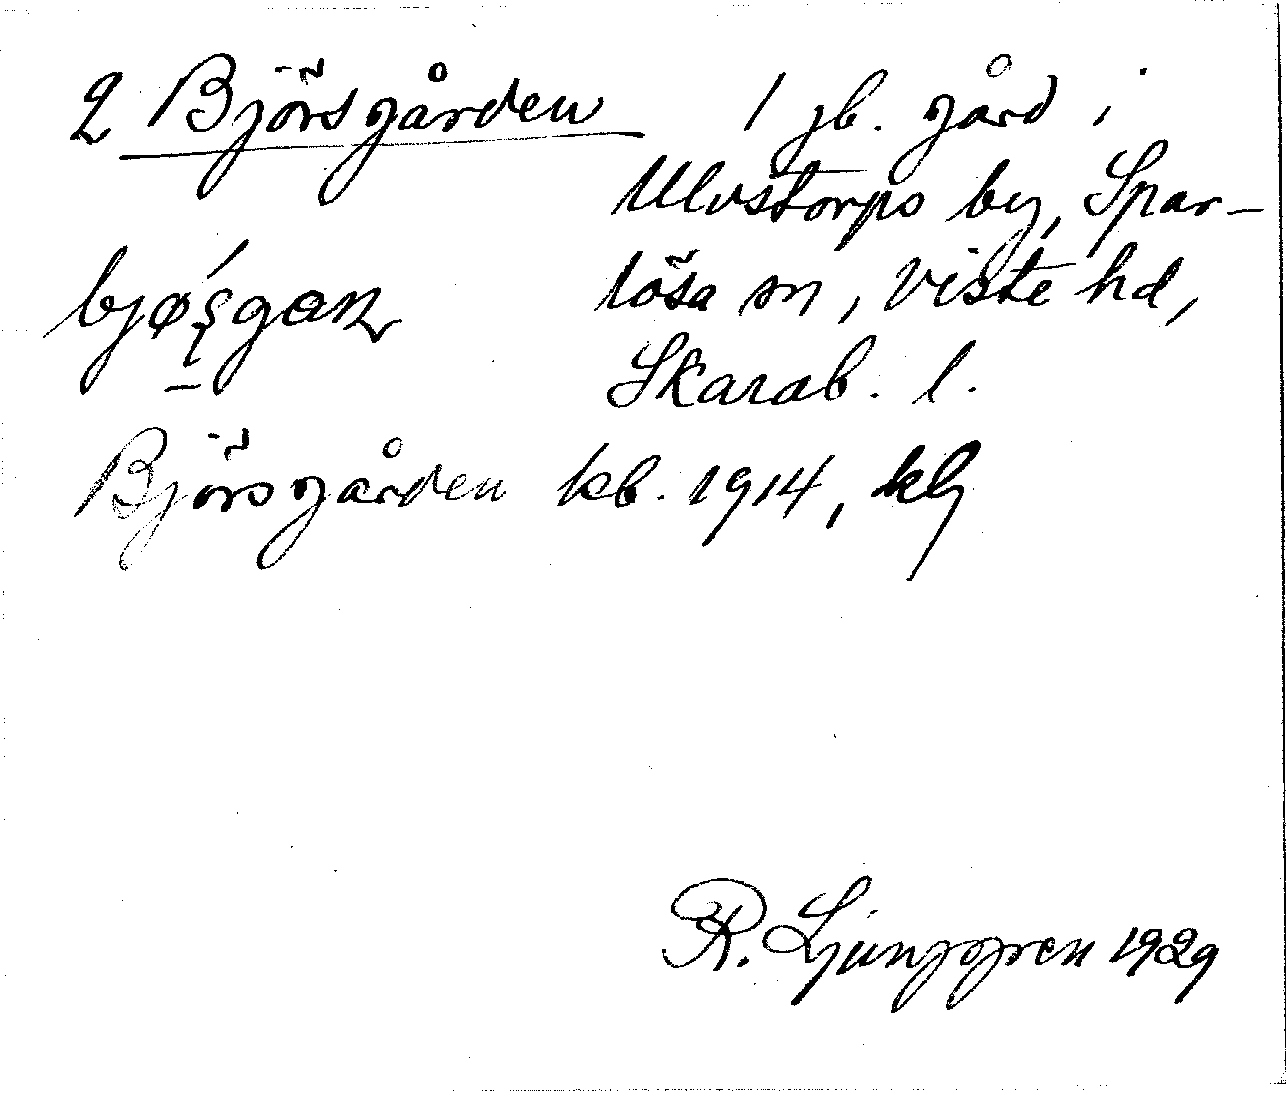 2 Björsgården 1 jb. gård i
Ulvstorps by, Spar-
lösa sn, Viste hd,
Skarab. l.
Björsgården kb. 1914, kly
R. Ljunggren 1929